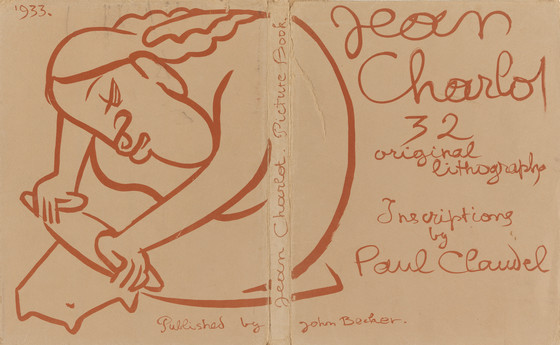 1933.
Jean Charlot. Picture Book.
Jean
Charlot
32
original
lithographs
Inscriptions
by
Paul Claudel
Published by John Becker.